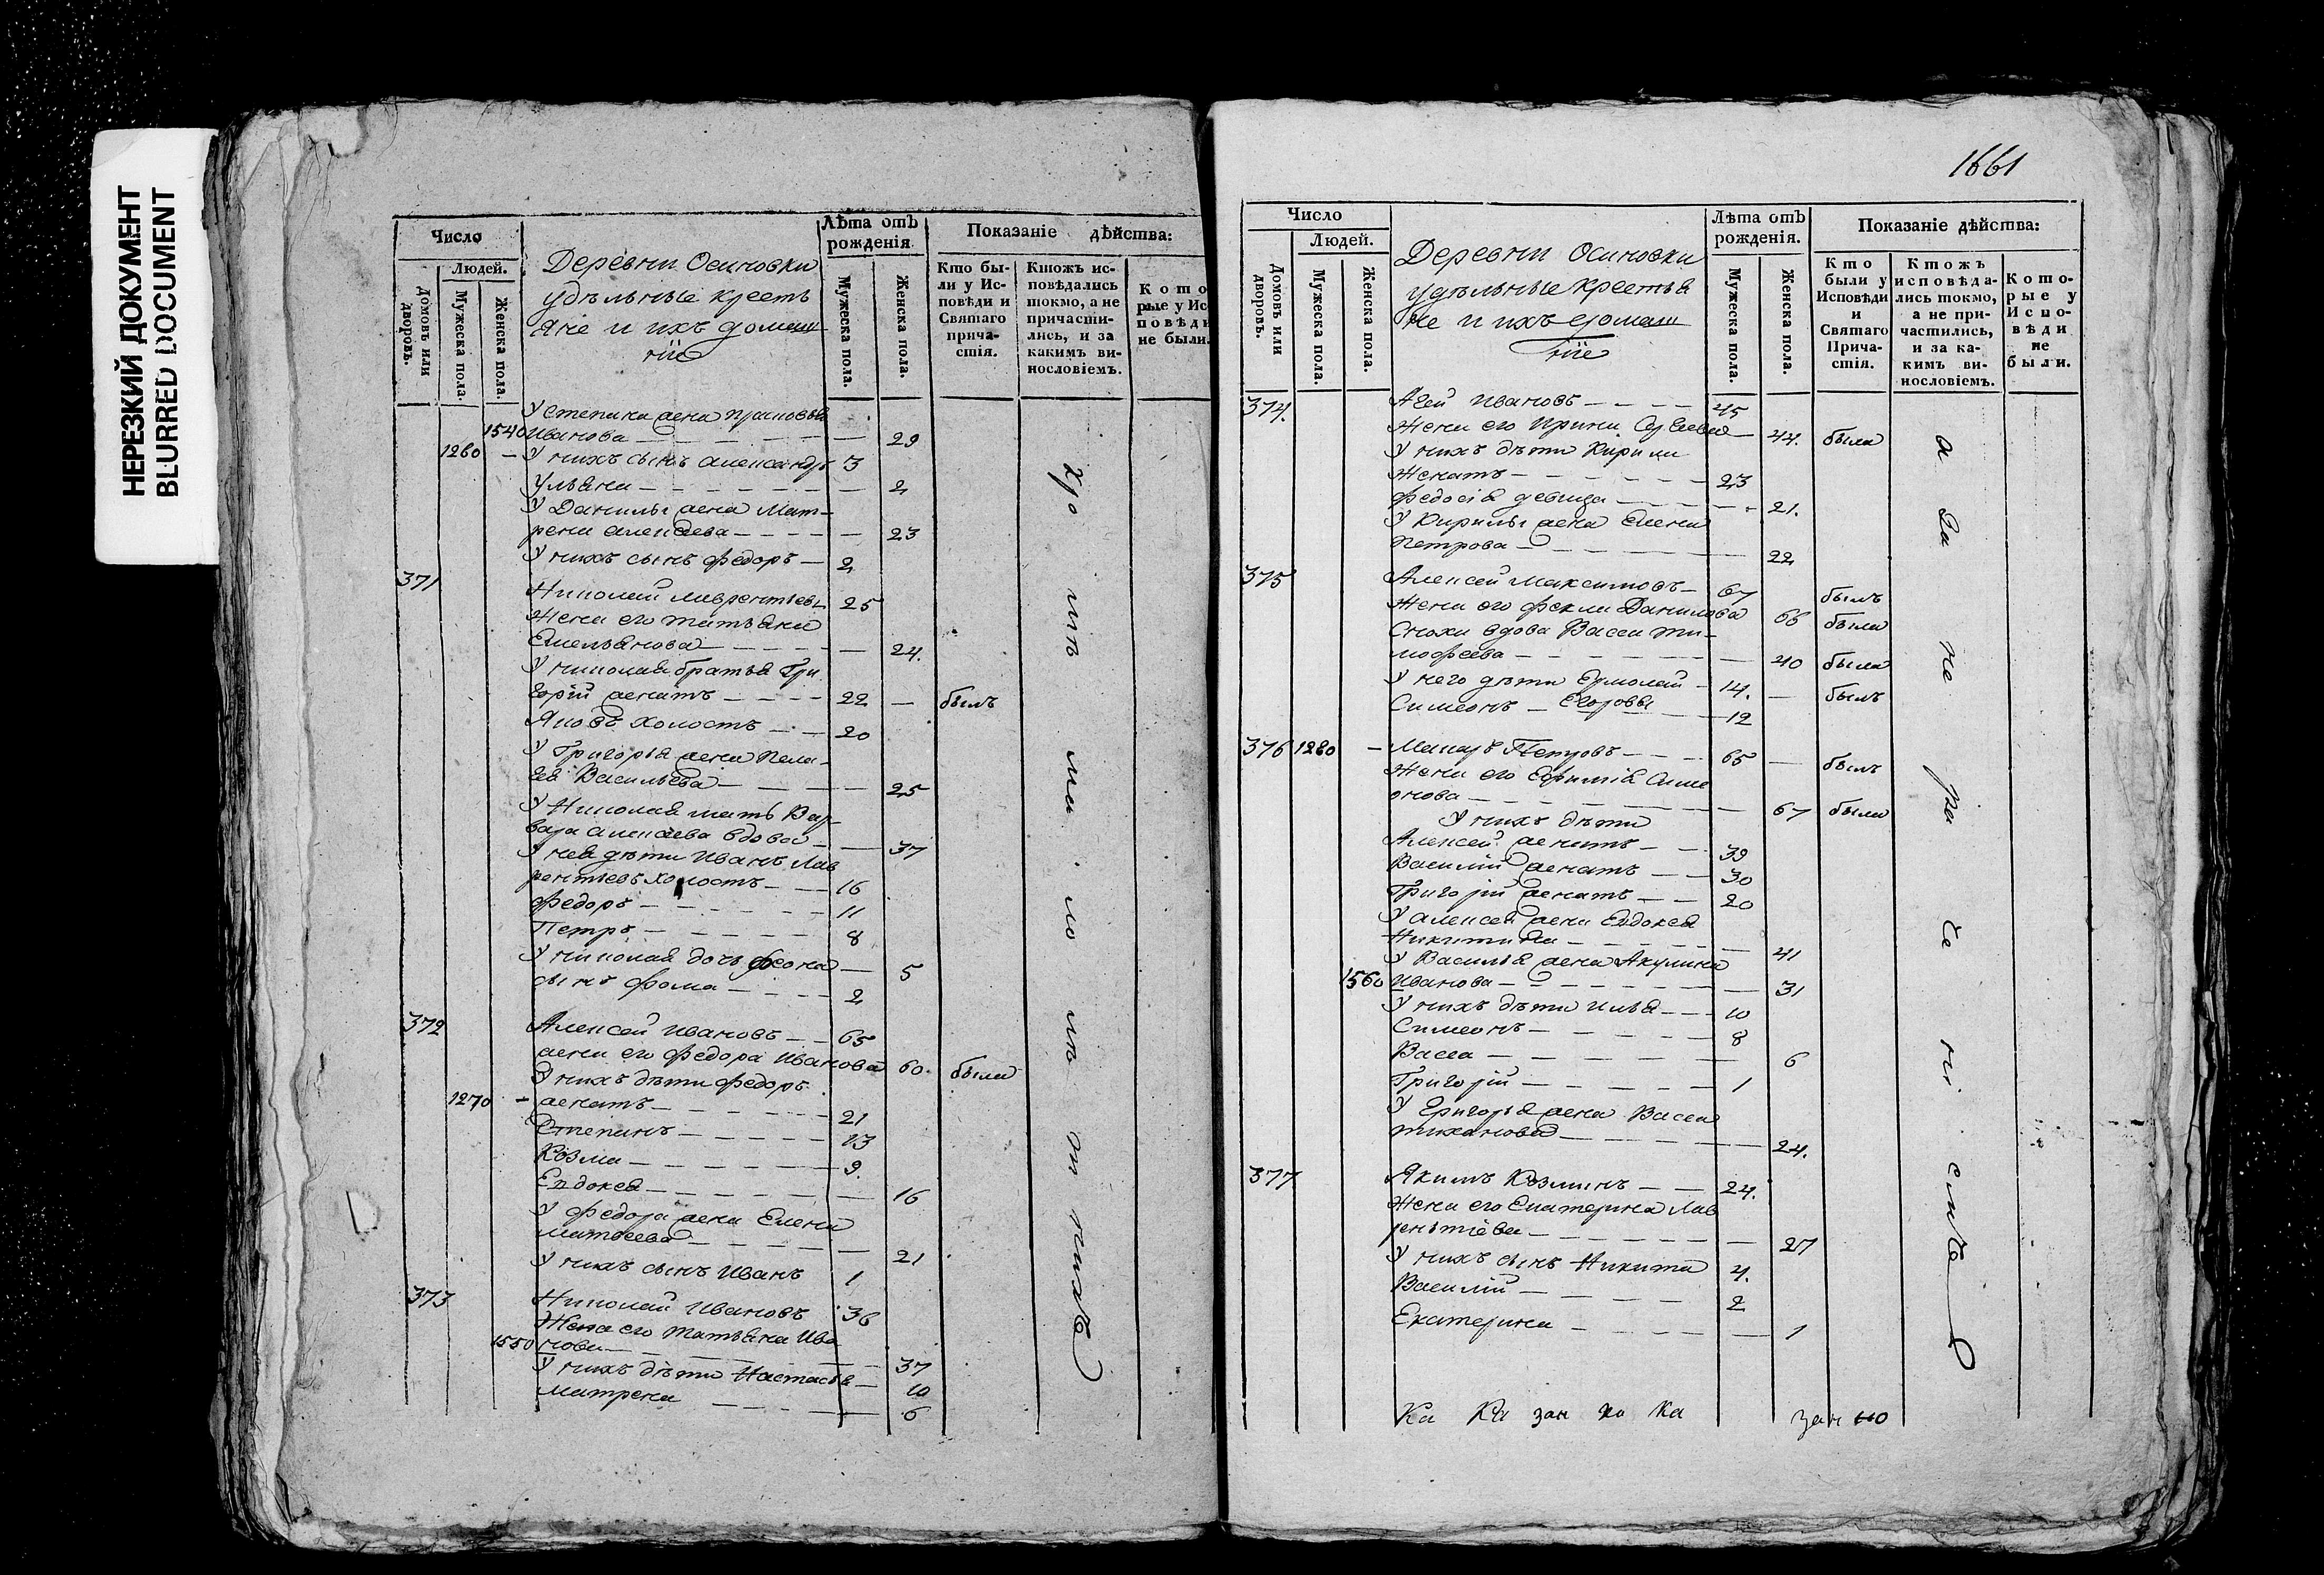 НЕРЕЗКИЙ ДОКУМЕНТ
BLURRED DOCUMENT
Число
Людей.
Домовъ или дворовъ.
Мужеска пола.
Женска пола.
Деревни Осиновки
удѣльные кресть
яне и ихъ домаш
ніе
Лѣта отъ рожденія
Мужеска пола.
Женска пола.
Показаніе дѣйства:
Кто бы-
ли у Ис-
повѣди и
Святаго
прича-
стія.
Ктожъ ис-
повѣдались
токмо, а не
причасти-
лись, и за
какимъ ви-
нословіемъ.
Кото
рые у Ис
повѣди
не были.
У Степана жена Прасковья
1540 Иванова — 29
1260 — У нихъ сынъ Александръ 3
Ульяна — 2
У Данилы жена Мат-
рена Алексѣева — 23
У нихъ сынъ Федоръ — 2
371 Николай Лаврентьевъ 25
Жена его Татьяна
Емельянова — 24.
У Николая братья Гри
горій женатъ — 22 — былъ
Яковъ холостъ — 20
У Григорья жена Пела-
гея Васильева — 25
У Николая мать Вар-
вара Алексѣева вдова — 37
У нея дѣти Иванъ Лав
рентьевъ холостъ — 16
Федоръ — 11
Петръ — 8
У Николая дочь — 5
сынъ Фома — 2
372 Алексей Ивановъ — 65
жена его Федора Иванова 60. была
У нихъ дѣти Федоръ
1270 — женатъ — 21
Степанъ — 13
Козма — 9.
Евдокея — 16
У Федора жена Елена
Матвеева — 21
У нихъ сынъ Иванъ 1
373 Николай Ивановъ 36
Жена его Татьяна Ива
1550 нова — 37
У нихъ дѣти Настасья — 10
Матрена — 6
1661
Число
Людей.
Домовъ или дворовъ.
Мужеска пола.
Женска пола.
Деревни Осиновки
удѣльные крестья
не и ихъ домаш
ніе
Лѣта отъ рожденія.
Мужеска пола.
Женска пола.
Показаніе дѣйства:
Кто
были у
Исповѣди
и
Святаго
Прича-
стія.
Ктожъ
исповѣда-
лись токмо,
а не при-
частились,
и за ка-
кимъ ви-
нословіемъ.
Кото-
рые у
Испо-
вѣди
не
были.
374. Агей Ивановъ — 45
Жена его Ирина — 44. была
У нихъ дѣти Кирила
женатъ — 23
Федосія девица — 21.
У Кирилы жена Елена
Петрова — 22
375 Алексей Максимовъ — 67 былъ
Жена его Фекла Данилова 66 была
Сноха вдова Васса Ти-
мофеева — 40 была
У него дѣти Ермолай — 14. — былъ
Симеонъ — Егоровы — 12
376 1280 — Макаръ Петровъ — 65 — былъ
Жена его Ефимія Симе
онова — 67 была
У нихъ дѣти
Алексей женатъ — 39
Василій женатъ — 30
Григорій женатъ — 20
У Алексея жена Евдокея
Никитина — 41
У Василья жена Акулина
1560 Иванова — 31
У нихъ дѣти Илья — 10
Симеонъ — 8
Васса — 6
Григорій — 1
У Григорья жена Васса
Тиханова — 24.
377 Якимъ Козминъ — 24.
Жена его Екатерина Лав
рентіева — 27
У нихъ сынъ Никита 4.
Василій — 2
Екатерина — 1